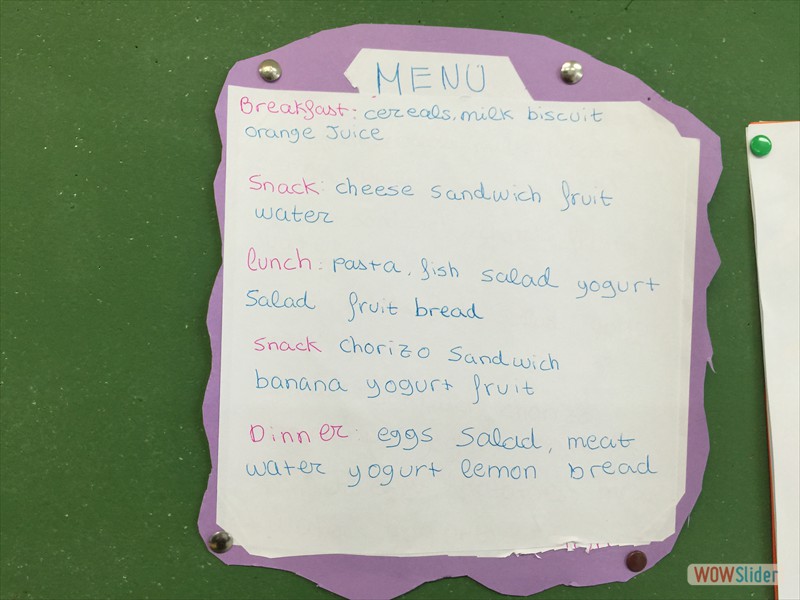 MENU
Breakfast: cereals, milk biscuit
orange Juice
Snack: cheese sandwich fruit
water
lunch: pasta, fish salad yogurt
Salad fruit bread
snack chorizo sandwich
banana yogurt fruit
Dinner: eggs salad, meat
water yogurt lemon bread
WOWSlider